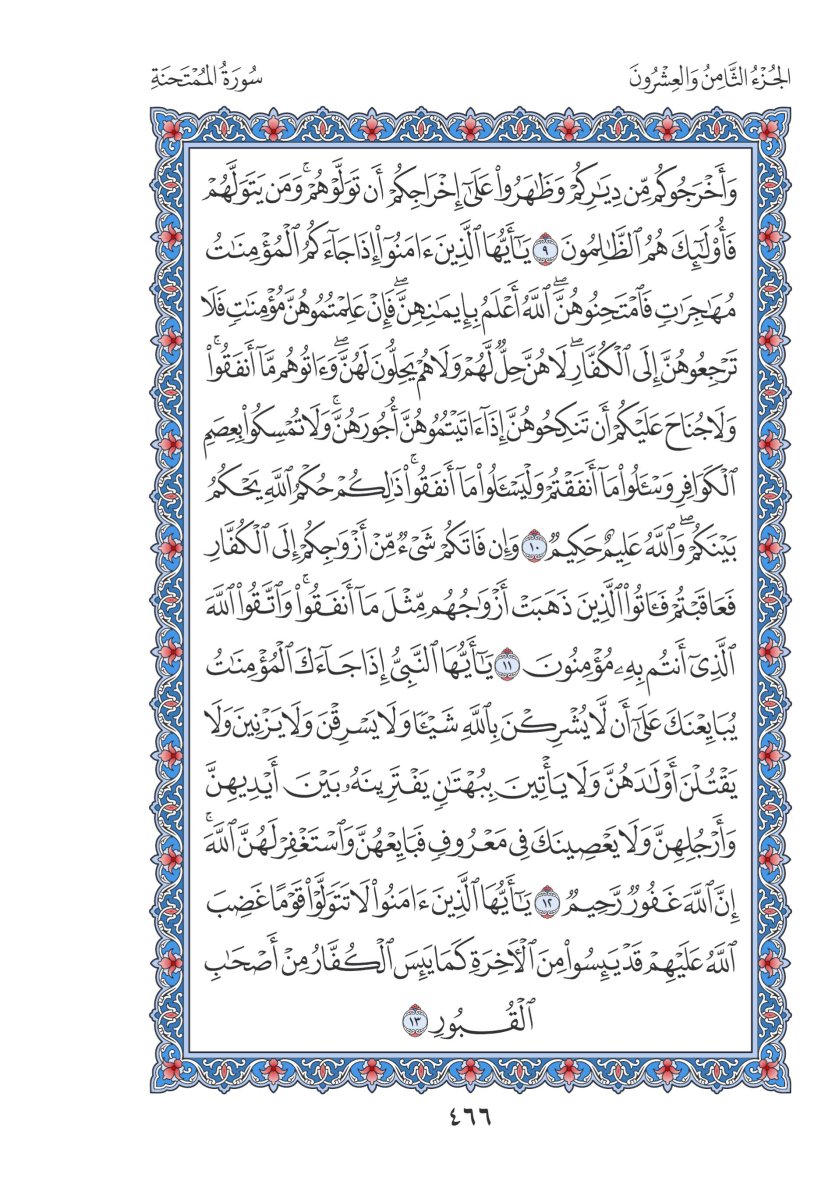 الجُزْءُ الثَّامِنُ وَالعِشْرُونَ
سُورَةُ المُمْتَحنَةِ
وَأَخْرَجُوكُم مِّن دِيَٰرِكُمْ وَظَٰهَرُوا۟ عَلَىٰٓ إِخْرَاجِكُمْ أَن تَوَلَّوْهُمْ ۚ وَمَن يَتَوَلَّهُمْ
فَأُو۟لَٰٓئِكَ هُمُ ٱلظَّٰلِمُونَ ٩ يَٰٓأَيُّهَا ٱلَّذِينَ ءَامَنُوٓا۟ إِذَا جَآءَكُمُ ٱلْمُؤْمِنَٰتُ
مُهَٰجِرَٰتٍ فَٱمْتَحِنُوهُنَّ ۖ ٱللَّهُ أَعْلَمُ بِإِيمَٰنِهِنَّ ۖ فَإِنْ عَلِمْتُمُوهُنَّ مُؤْمِنَٰتٍ فَلَا
تَرْجِعُوهُنَّ إِلَى ٱلْكُفَّارِ ۖ لَا هُنَّ حِلٌّ لَّهُمْ وَلَا هُمْ يَحِلُّونَ لَهُنَّ ۖ وَءَاتُوهُم مَّآ أَنفَقُوا۟ ۚ
وَلَا جُنَاحَ عَلَيْكُمْ أَن تَنكِحُوهُنَّ إِذَآ ءَاتَيْتُمُوهُنَّ أُجُورَهُنَّ ۚ وَلَا تُمْسِكُوا۟ بِعِصَمِ
ٱلْكَوَافِرِ وَسْـَٔلُوا۟ مَآ أَنفَقْتُمْ وَلْيَسْـَٔلُوا۟ مَآ أَنفَقُوا۟ ۚ ذَٰلِكُمْ حُكْمُ ٱللَّهِ يَحْكُمُ
بَيْنَكُمْ ۖ وَٱللَّهُ عَلِيمٌ حَكِيمٌ ١٠ وَإِن فَاتَكُمْ شَىْءٌ مِّنْ أَزْوَٰجِكُمْ إِلَى ٱلْكُفَّارِ
فَعَاقَبْتُمْ فَـَٔاتُوا۟ ٱلَّذِينَ ذَهَبَتْ أَزْوَٰجُهُم مِّثْلَ مَآ أَنفَقُوا۟ ۚ وَٱتَّقُوا۟ ٱللَّهَ
ٱلَّذِىٓ أَنتُم بِهِۦ مُؤْمِنُونَ ١١ يَٰٓأَيُّهَا ٱلنَّبِىُّ إِذَا جَآءَكَ ٱلْمُؤْمِنَٰتُ
يُبَايِعْنَكَ عَلَىٰٓ أَن لَّا يُشْرِكْنَ بِٱللَّهِ شَيْـًٔا وَلَا يَسْرِقْنَ وَلَا يَزْنِينَ وَلَا
يَقْتُلْنَ أَوْلَٰدَهُنَّ وَلَا يَأْتِينَ بِبُهْتَٰنٍ يَفْتَرِينَهُۥ بَيْنَ أَيْدِيهِنَّ
وَأَرْجُلِهِنَّ وَلَا يَعْصِينَكَ فِى مَعْرُوفٍ فَبَايِعْهُنَّ وَٱسْتَغْفِرْ لَهُنَّ ٱللَّهَ ۚ
إِنَّ ٱللَّهَ غَفُورٌ رَّحِيمٌ ١٢ يَٰٓأَيُّهَا ٱلَّذِينَ ءَامَنُوا۟ لَا تَتَوَلَّوْا۟ قَوْمًا غَضِبَ
ٱللَّهُ عَلَيْهِمْ قَدْ يَئِسُوا۟ مِنَ ٱلْءَاخِرَةِ كَمَا يَئِسَ ٱلْكُفَّارُ مِنْ أَصْحَٰبِ
ٱلْقُبُورِ ١٣
٤٦٦